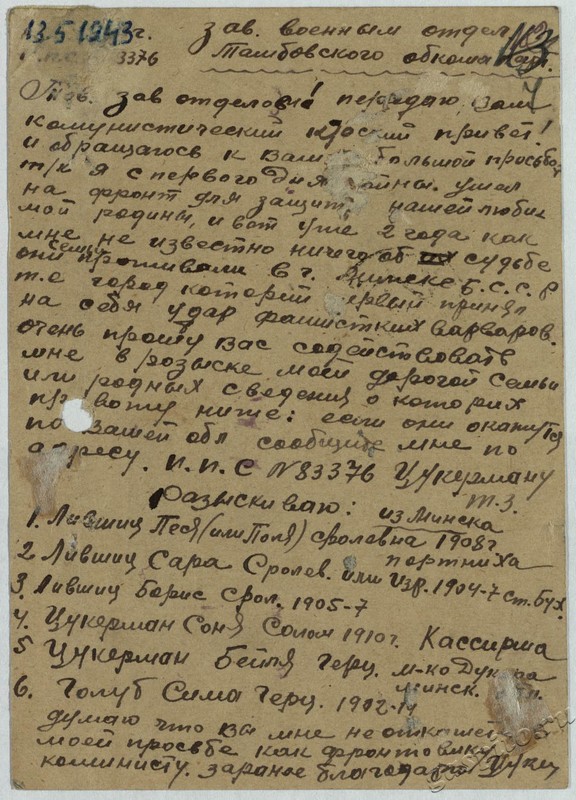 13.5 1943 г. зав. военным отдел
П.П.С. 83376 Тамбовского обкома
Тов. зав отделом! передаю Вам
комунистический привет!
и обращаюсь к Вам большой просьбой
т/к я с первого дня войны ушел
на фронт для защиты нашей любим
мой родины, и вот уже 2 года как
мне не известно ничего об судьбе
семьи
они проживали в г. Минске Б.С.С.Р
т.е город который первый принял
на себя удар фашистких варваров.
очень прошу Вас содействовать
мне в розыске моей дорогой семьи
или родных сведения о которих
привожу ниже: если они окажутся
по вашей обл сообщите мне по
адресу. П.П.С N83376 Цукерману
разыскиваю: из Минска
1. Лившиц Песя (или Поля) Сролевна 1908г
портниха
2 Лившиц Сара Сролев. или Изр. 1904-7 ст. бух.
3. Лившиц Борис Срол. 1905-7
4. Цукерман Соня Солом 1910г. Кассирша
5 Цукерман Бейля Герц. м-ко Дукора
Минск.
6. Голуб Сима Герц.
думаю что Вы мне не откажете в
моей просьбе как фронтовику
комунисту. зараное благодарю Цукер